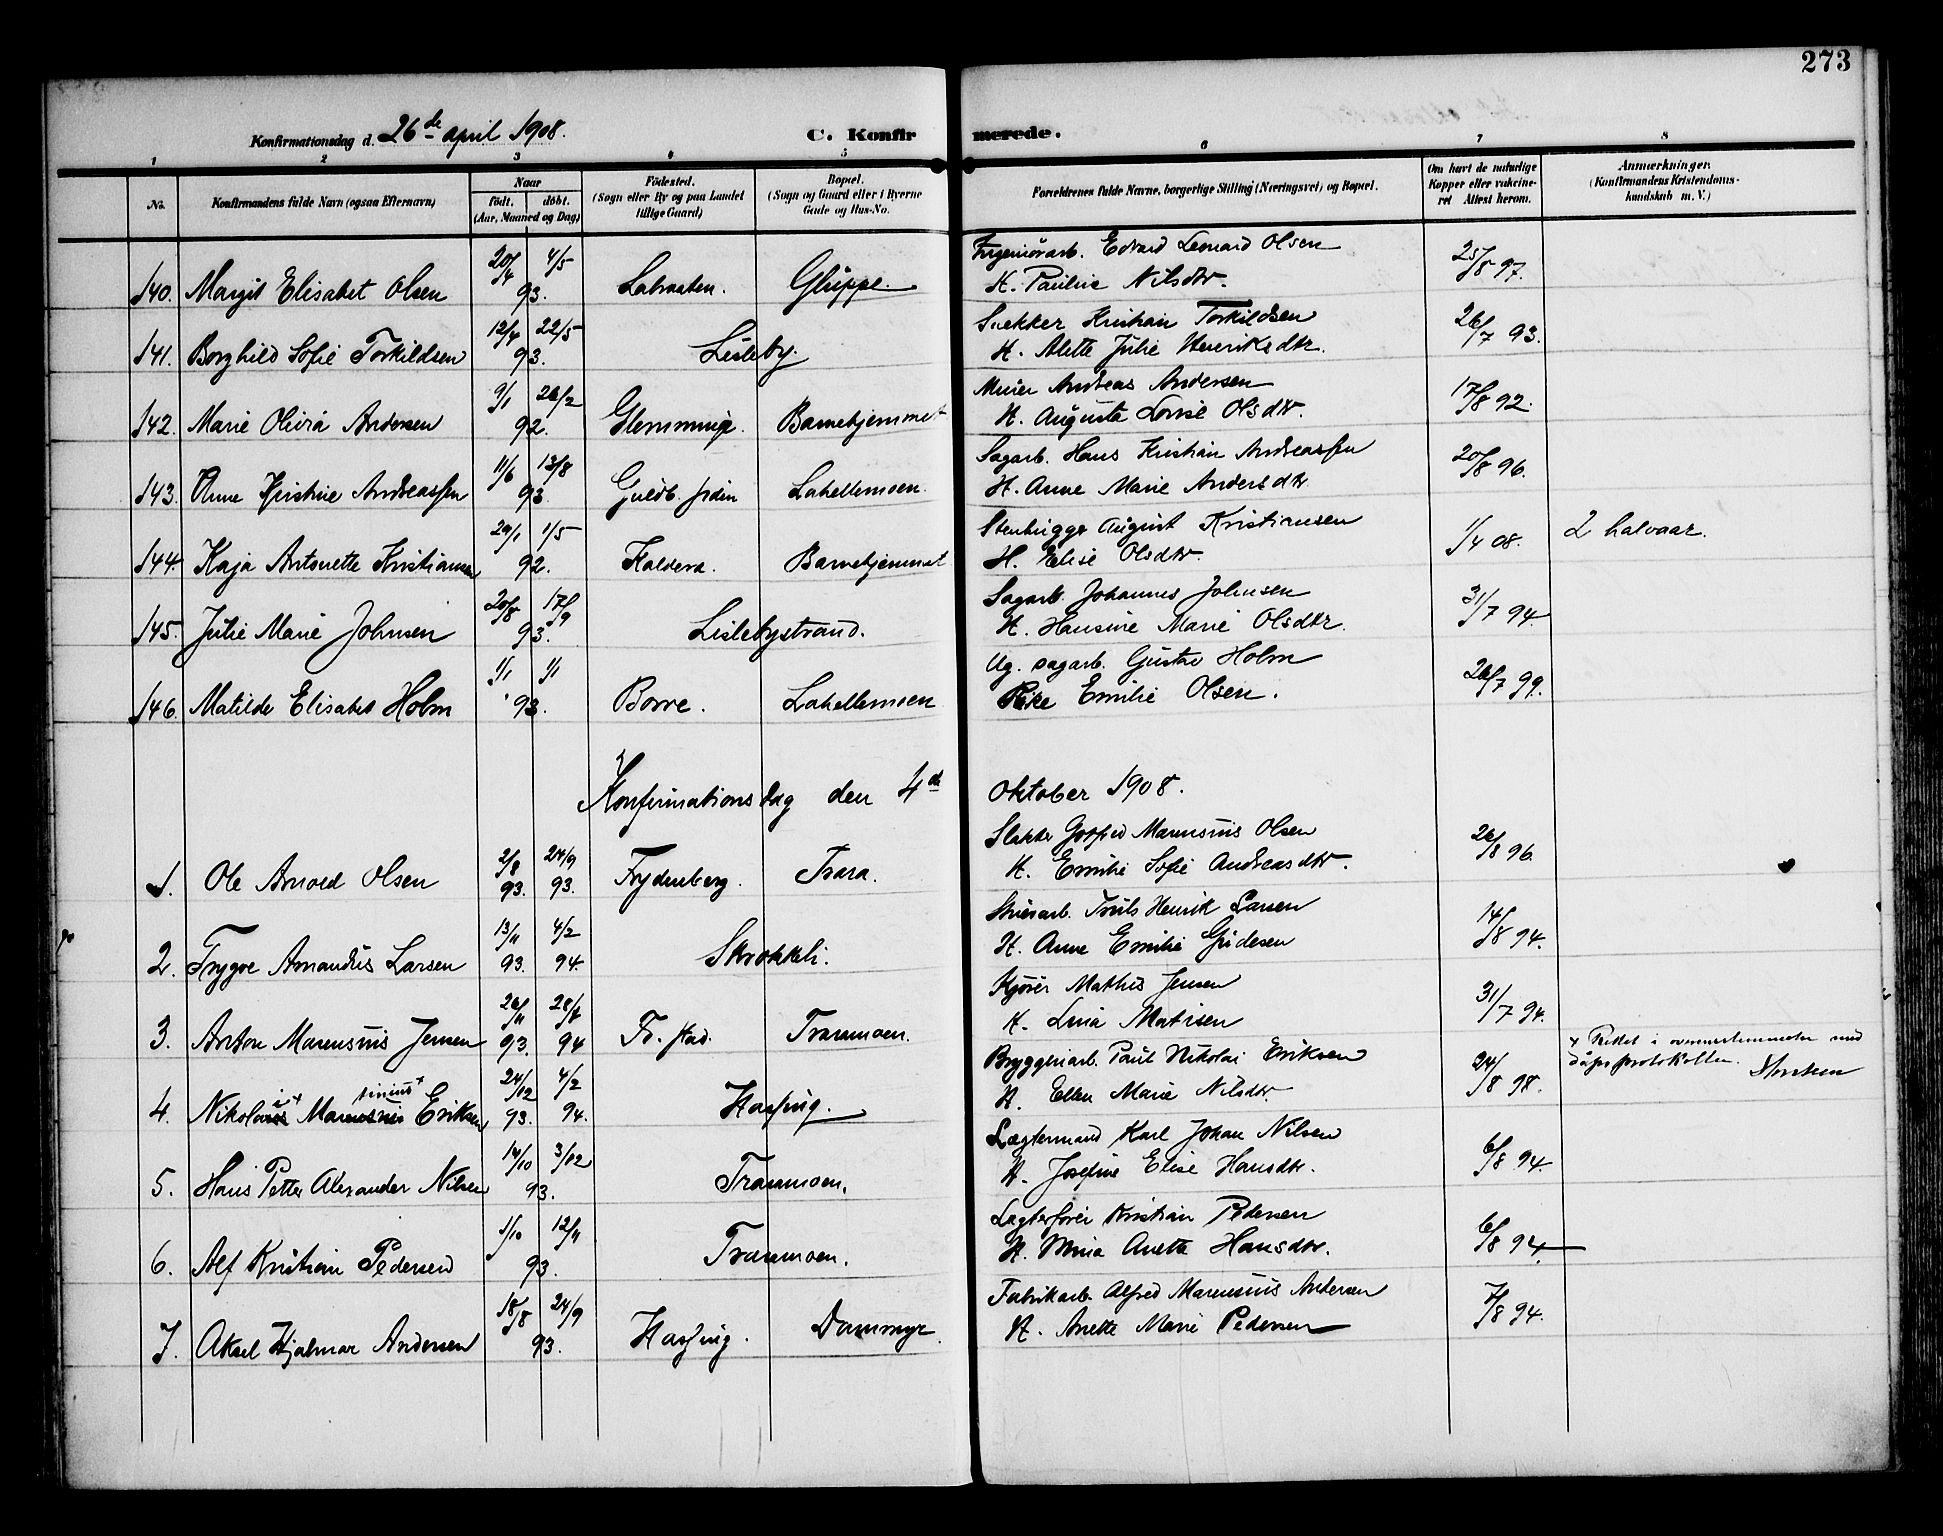 273
Konfirmationsdag d. 26de april 1908. C. Konfirmerede.
1 2 3 4 5 6 7 8
No. Konfirmandens fulde Navn (ogsaa Efternavn) Naar født. døbt. (Aar, Maaned og Dag) Fødested. (Sogn eller By og paa Landet tillige Gaard) Bopæl. (Sogn og Gaard eller i Byerne Gade og Hus-No. Forældrenes fulde Navne, borgerlige Stilling (Næringsvei) og Bopæl. Om havt de naturlige Kopper eller vakcineret Attest herom. Anmærkninger. (Konfirmandens Kristendomskundskab m. V.)
140. Margit Elisabet Olsen 20/4 4/5 93. Labraaten. Gluppe. Ingeniørarb. Edvard Leonard Olsen
H. Pauline Nilsdtr. 25/8 97.
141. Borghild Sofie Torkildsen 12/4 22/5 93. Lisleby. Snekker Kristian Torkildsen
H. Alette Julie Henriksdtr. 26/7 93.
142. Marie Olivia Andersen 9/1 26/2 92. Glemminge. Barnehjemmet Murer Andreas Andersen
H. Augusta Lovise Olsdtr. 17/8 92.
143. Anne Kristine Andreassen 11/6 13/8 93 Guldb. Lahellemoen. Sagarb. Hans Kristian Andreassen
H. Anne Marie Andersdtr 20/8 96.
144. Kaja Antonette Kristiansen 29/1 1/5 92. Kaldera. Barnehjemmet Stenhugger August Kristiansen
H. Elise Olsdtr. 1/4 08. 2 halvaar.
145. Julie Marie Johnsen 20/8 17/9 93. Lislebystrand. Sagarb. Johannes Johnsen
H. Hansine Marie Olsdtr. 31/7 94.
146. Matilde Elisabet Holm 1/1 1/1 93. Borre. Lahellemoen Ug. sagarb. Gustav Holm
Pike Emilie Olsen. 26/7 99.
Konfirmationsdag den 4de Oktober 1908.
1. Ole Arnold Olsen 2/8 93. 24/9 93. Frydenberg. Trara. Slakter Gotfred Marensius Olsen
H. Emilie Sofie Andreasdtr. 26/8 96.
2. Trygve Amandus Larsen 13/11 93. 4/2 94. Skrokkeli. Truls Henrik Larsen
H. Anne Emilie Gudesen 14/8 94.
3. Anton Marensius Jensen 26/11 93. 94 Fr.stad. Traramoen. Kjører Mathis Jensen
H. Lina Matisen 31/7 94.
4. Nikolai Marensius sinius + Eriksen 24/12 93. 4/2 94. Hassing. Bryggeriarb. Paul Nikolai Eriksen
H. Ellen Marie Nilsdtr 24/8 98. + Rettet i overensstemmelse med
dåpsprotokollen.
5. Hans Petter Alexander Nilsen 14/10 3/12 93. Traramoen. Lægtermand Karl Johan Nilsen
H. Josefine Elise Hansdtr. 6/8 94.
6. Alf Kristian Pedersen 1/10 12/11 93. Traramoen. Kristian Pedersen
H. Mina Anette Hansdtr. 6/8 94.
7. Aksel Hjalmar Andersen 18/8 24/9 93. Hassing. Dammyr Fabrikarb. Alfred Marensius Andersen
H. Anette Marie Pedersen 7/8 94.